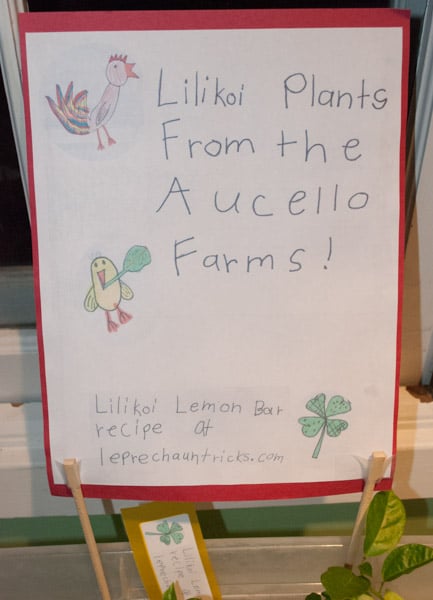 Lilikoi Plants
From the
Aucello
Farms!
Lilikoi Lemon Bar
recipe at
leprechauntricks.com
Lilikoi Lem
recipe